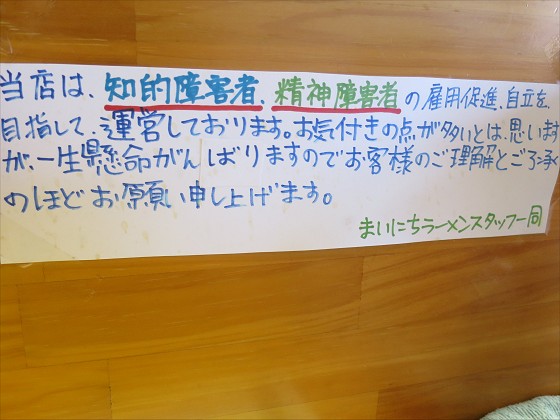 当店は、知的障害者、精神障害者の雇用促進、自立を、
目指して、運営しております。お気付きの点が多いとは、思います
が、一生懸命がんばりますのでお客様のご理解とご了承
のほどお願い申し上げます。
まいにちラーメンスタッフ一同